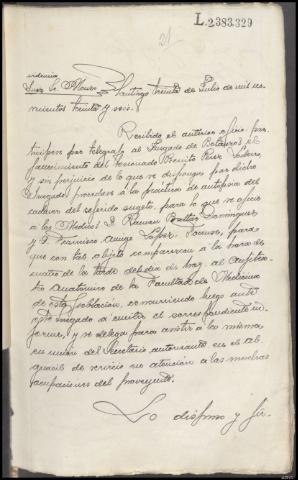 L.2383.329
21
Providencia
Juez Sr. Mouro
Santiago treinta de Julio de mil no-
vecientos treinta y seis.
Recibido el anterior oficio, par-
ticipese por telegrafo al Juzgado de el
fallecimiento del lesionado Benito Perez
y sin perjuicio de lo que se disponga por dicho
Juzgado, procedase á la práctica de autopsia del
cadaver del referido sugeto, para lo que se oficie
á los Médicos D. Ramón Baltar Dominguez
y D. Lopez para
que con tal objeto comparezcan á la hora de
cuatro de la tarde del dia de hoy, al Anfitea-
tro Anatómico de la Facultad de Medicina
de esta población, concurriendo luego ante
este Juzgado á emitir el correspondiente in-
forme, y se delega para asistir á la misma,
en unión del Secretario autorizante, en el al-
guacil de servicio en atención á las muchas
ocupaciones del proveyente.
Lo dispuso y fir-